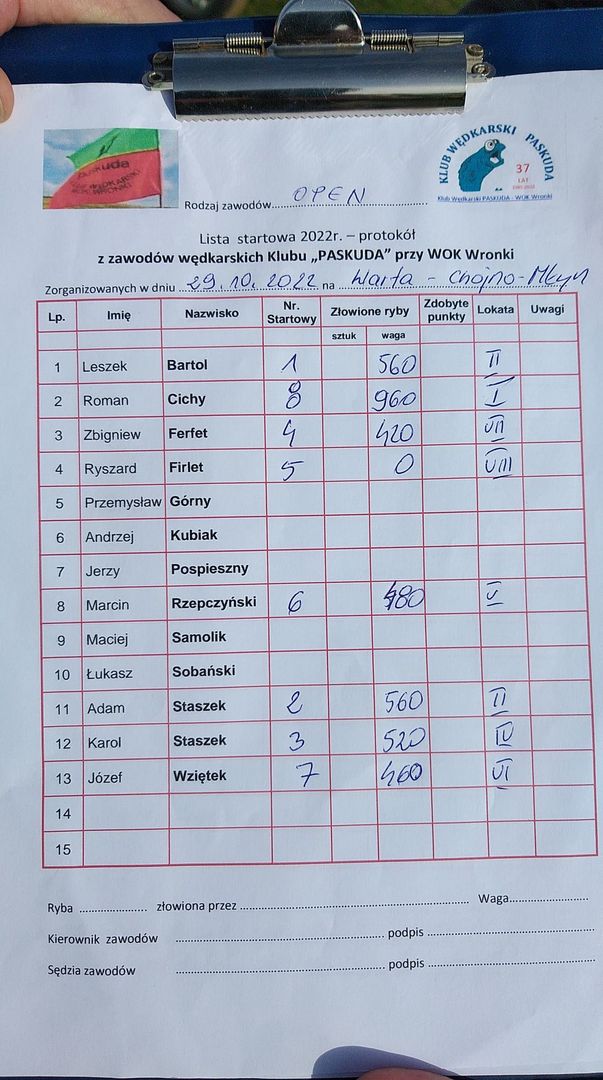 Paskuda
KLUB WĘDKARSKI
WOK WRONKI
KLUB WĘDKARSKI PASKUDA
37
LAT
1985-2022
Klub Wędkarski PASKUDA - WOK Wronki
Rodzaj zawodów OPEN
Lista startowa 2022r. – protokół
z zawodów wędkarskich Klubu „PASKUDA” przy WOK Wronki
Zorganizowanych w dniu 29.10.2022 na Warta - Chojno-Młyn
Lp. Imię Nazwisko Nr. Startowy Złowione ryby Zdobyte punkty Lokata Uwagi
sztuk waga
1 Leszek Bartol 1 560 II
2 Roman Cichy 8 960 I
3 Zbigniew Ferfet 4 420 VII
4 Ryszard Firlet 5 0 VIII
5 Przemysław Górny
6 Andrzej Kubiak
7 Jerzy Pospieszny
8 Marcin Rzepczyński 6 480 V
9 Maciej Samolik
10 Łukasz Sobański
11 Adam Staszek 2 560 II
12 Karol Staszek 3 520 IV
13 Józef Wziętek 7 460 VI
14
15
Ryba ........................ złowiona przez ........................ Waga........................
Kierownik zawodów ........................ podpis ........................
Sędzia zawodów ........................ podpis ........................